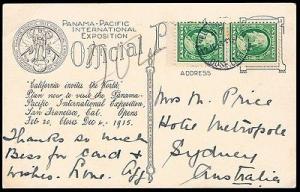 PANAMA-PACIFIC
INTERNATIONAL
EXPOSITION
Official P
ADDRESS
"California invites the world."
Plan now to visit the Panama-
Pacific International Exposition,
San Francisco, Cal. Opens
Feb. 20, closes Dec. 4, 1915.
Thanks so much
Bess for card &
wishes. Love.
Mrs M. Price
Hotel Metropole
Sydney
Australia